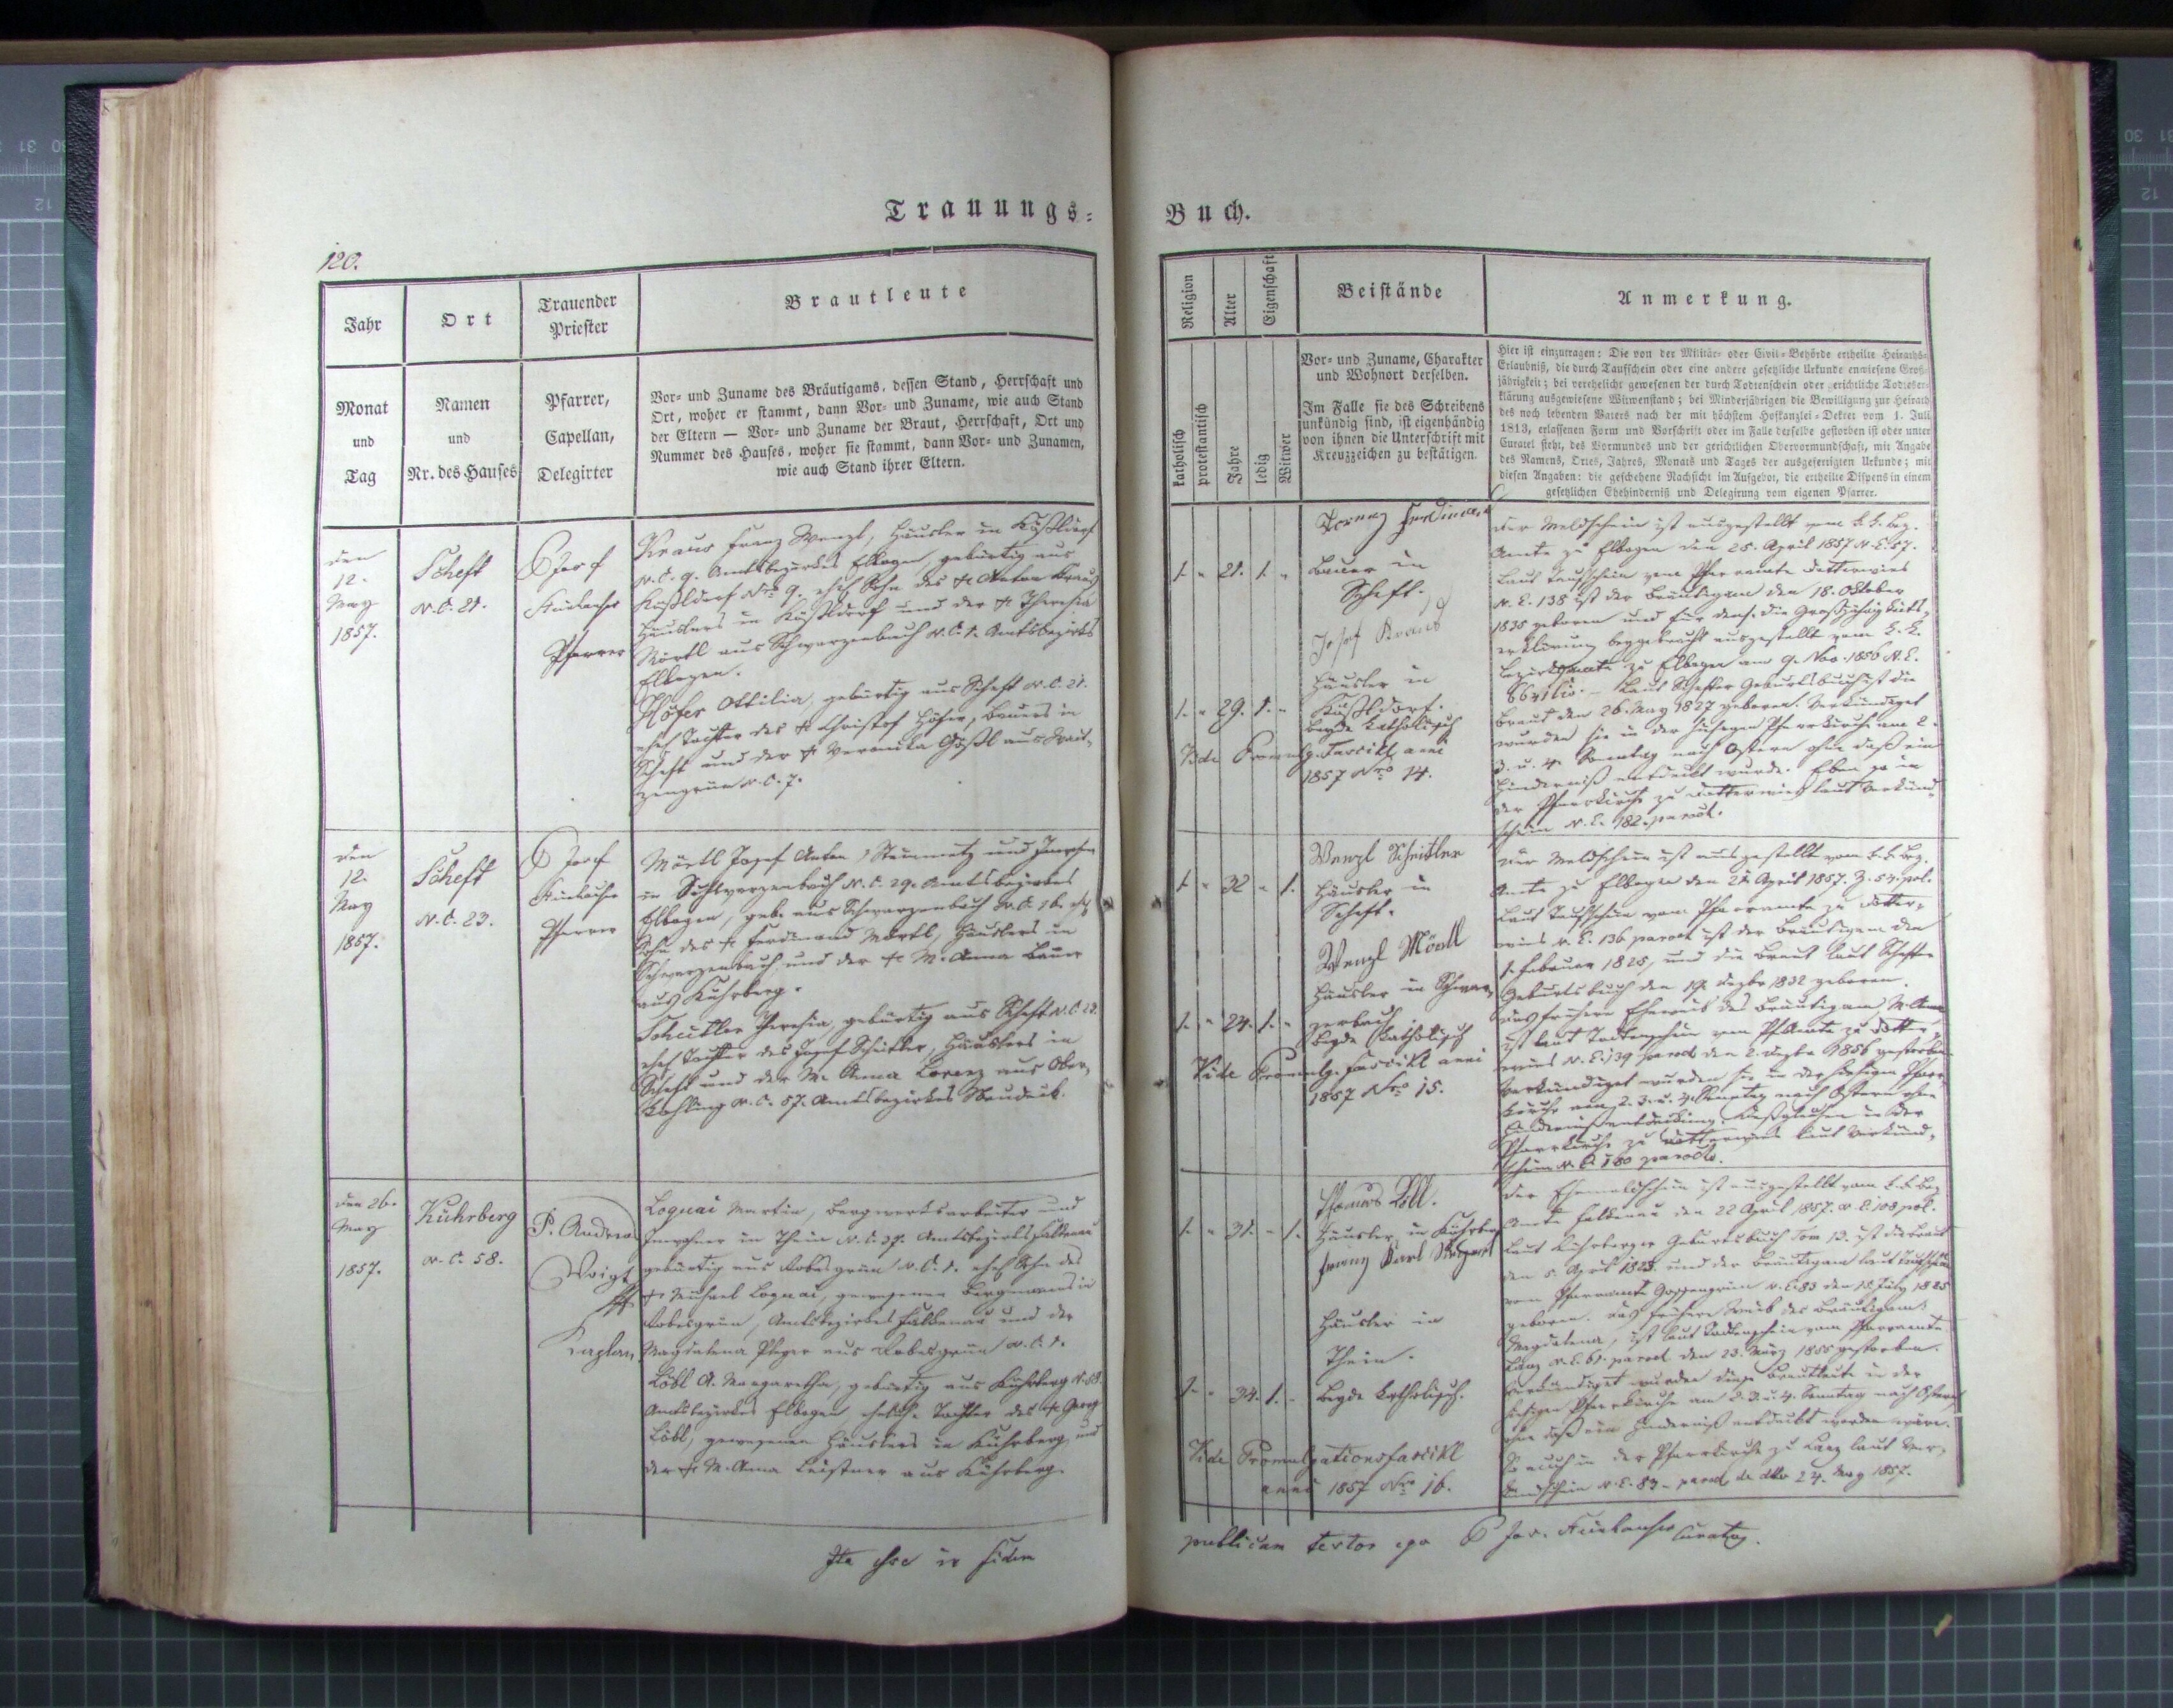 Trauungs=
Buch.
120.
Jahr
Ort
Trauender
Priester
Brautleute
Monat
und
Tag
Namen
und
Nr. des Hauses
Pfarrer,
Capellan,
Delegirter
Vor= und Zuname des Bräutigams, dessen Stand, Herrschaft und
Ort, woher er stammt, dann Vor= und Zuname, wie auch Stand
der Eltern — Vor= und Zuname der Braut, Herrschaft, Ort und
Nummer des Hauses, woher sie stammt, dann Vor= und Zunamen,
wie auch Stand ihrer Eltern.
den
12.
May
1857.
Scheft
N.C. 21.
Josef
Pfarrer
Kraus Franz Wenzl, Häusler in Kößldorf
N.C. 9. Amtsbezirkes Elbogen gebürtig aus
Kößldorf Nro 9. ehel. Sohn des Anton Kraus
Häuslers in Kößldorf und der Theresia
Mörtl aus Schwarzenbach N.C. 1. Amtsbezirkes
Elbogen.
Höfer Ottilia, gebürtig aus Scheft N.C. 21.
ehel. Tochter des Christof Höfer, Bauers in
Scheft und der Veronika Gößl aus
N.C. 7.
den
12.
May
1857.
Scheft
N.C. 23.
Josef
Pfarrer
Mörtl Josef Anton, Steinmetz und
in Schwarzenbach N.C. 29. Amtsbezirkes
Elbogen, geb. aus Schwarzenbach N.C. 16. ehel.
Sohn des Ferdinand Mörtl, Häuslers in
Schwarzenbach und der M. Anna Bauer
aus Kührberg.
Scheitler Theresia, gebürtig aus Scheft N.C. 23.
ehel. Tochter des Josef Scheitler, Häuslers in
Scheft und der M. Anna Lorenz aus Ober=
N.C. 57. Amtsbezirkes Neudeck.
den 26.
May
1857.
Kührberg
N.C. 58.
P. Andreas
Voigt
Kaplan
Loquai Martin, Bergwerksarbeiter und
Inwohner in Thein N.C. 37. Amtsbezirkes Falkenau
gebürtig aus Robesgrün N.C. 1. ehel. Sohn des
Michael Loquai, gewesenen Bergmanns in
Robesgrün, Amtsbezirkes Falkenau und der
Magdalena aus Robesgrün N.C. 1.
Löbl A. Margaretha, gebürtig aus Kührberg N. 58.
Amtsbezirkes Elbogen, eheliche Tochter des Georg
Löbl, gewesenen Häuslers in Kührberg und
der M. Anna Leistner aus Kührberg.
Religion
Alter
Eigenschaft
Beistände
Anmerkung.
katholisch
protestantisch
Jahre
ledig
Witwer
Vor= und Zuname, Charakter
und Wohnort derselben.
Im Falle sie des Schreibens
unkündig sind, ist eigenhändig
von ihnen die Unterschrift mit
Kreuzzeichen zu bestätigen.
Hier ist einzutragen: Die von der Militär= oder Civil=Behörde ertheilte Heiraths=
Erlaubniß, die durch Taufschein oder eine andere gesetzliche Urkunde erwiesene Groß=
jährigkeit; bei verehelicht gewesenen der durch Todtenschein oder gerichtliche Todeser=
klärung ausgewiesene Witwenstand; bei Minderjährigen die Bewilligung zur Heirath
des noch lebenden Vaters nach der mit höchstem Hofkanzlei=Dekret vom 1. Juli
1813, erlassenen Form und Vorschrift oder im Falle derselbe gestorben ist oder unter
Curatel steht, des Vormundes und der gerichtlichen Obervormundschaft, mit Angabe
des Namens, Ortes, Jahres, Monats und Tages der ausgefertigten Urkunde; mit
diesen Angaben: die geschehene Nachsicht im Aufgebot, die ertheilte Dispens in einem
gesetzlichen Ehehinderniß und Delegirung vom eigenen Pfarrer.
1. " 21. 1. "
Ferdinand
Bauer in
Scheft.
Josef Kraus
Häusler in
1. " 29. 1. "
Kößldorf.
Beyde katholisch
Vide Promulg. Fascikl anni
1857 Nro 14.
Der Meldschein ist ausgestellt vom k.k. Bez.
Amte zu Elbogen den 25. April 1857 N.E. 57.
Laut Taufschein vom Pfarramte Dotterwies
N.E. 138 ist der Bräutigam den 18. Oktober
1835 geboren und für dens. die Großjährigkeits=
erklärung beygebracht ausgestellt vom k.k.
Bezirksamte zu Elbogen am 9. Nov. 1856 N.E.
Laut Schefter Geburtsbuch ist die
Braut den 26. May 1827 geboren. Verkündiget
wurden sie in der hiesigen Pfarrkirche am 2.
3. u. 4. Sonntag nach Ostern ohne daß ein
Hinderniß entdeckt wurde. Eben so in
der Pfarrkirche zu Dotterwies laut Verkünd=
schein N.E. 182. paroch.
1. " 32 " 1.
Wenzl Scheitler
Häusler in
Scheft.
Wenzl Mörtl
Häusler in Schwar=
1. " 24. 1. "
zenbach
Beyde katholisch
Vide Promulg. Fascikl anni
1857 Nro 15.
Der Meldschein ist ausgestellt vom k.k. Bez.
Amte zu Elbogen den April 1857. Z. 54. pol.
Laut Taufschein vom Pfarramte zu Dotter=
wies N.E. 136 paroch ist der Bräutigam den
1. Februar 1825, und die Braut laut Schefter
Geburtsbuch den 19. Dezbr 1832 geboren.
Das frühere Eheweib des Bräutigams M. Anna
ist laut Todtenschein vom Pfarramte zu Dotter=
wies N.E. 139 paroch den 2. Dezbr 1856 gestorben
Verkündiget wurden sie in der hiesigen Pfarr=
kirche am 2. 3. u. 4. Sonntag nach Ostern ohne
Hindernißentdeckung. Deßgleichen in der
Pfarrkirche zu Dotterwies laut Verkünd=
schein N.E. 180 paroch.
1. " 31. " 1.
Thomas Löbl.
Häusler in Kührberg
Franz Karl
Häusler in
Thein.
1. " 34. 1. "
Beyde katholisch.
Vide Promulgationsfascikl
anni 1857 Nro 16.
Der Ehemeldschein ist ausgestellt vom k.k. Bez.
Amte Falkenau den 22 April 1857. N.E. 108 pol.
Laut Kührberger Geburtsbuch Tom 13. ist die Braut
den 5. April 1823. und der Bräutigam laut Taufschein
vom Pfarramte Gossengrün N.E. 83 den 15. July 1825
geboren. Das frühere Weib des Bräutigams
Magdalena, ist laut Todtenschein vom Pfarramte
Lanz N.E. 61. paroch den 23. März 1855 gestorben.
Verkündiget wurden diese Brautleute in der
hiesigen Pfarrkirche am 2. 3. u. 4. Sonntag nach Ostern
ohne daß ein Hinderniß entdeckt worden wäre.
So auch in der Pfarrkirche zu Lanz laut Ver=
kündschein N.E. 83 – paroch de dto 24. May 1857.
Ita esse in fidem
publicam testor ego P Jos. Curatus.